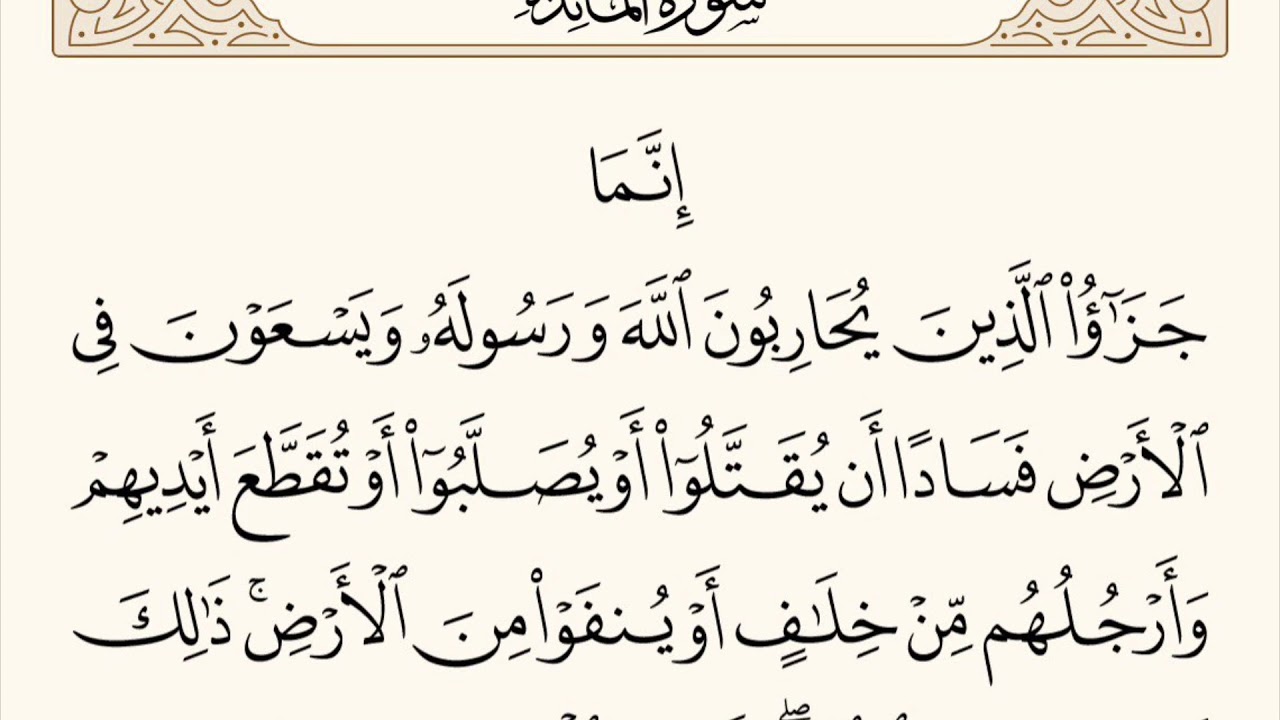 سورة المائدة
إِنَّمَا
جَزَٰٓؤُا۟ ٱلَّذِينَ يُحَارِبُونَ ٱللَّهَ وَرَسُولَهُۥ وَيَسْعَوْنَ فِى
ٱلْأَرْضِ فَسَادًا أَن يُقَتَّلُوٓا۟ أَوْ يُصَلَّبُوٓا۟ أَوْ تُقَطَّعَ أَيْدِيهِمْ
وَأَرْجُلُهُم مِّنْ خِلَٰفٍ أَوْ يُنفَوْا۟ مِنَ ٱلْأَرْضِ ۚ ذَٰلِكَ